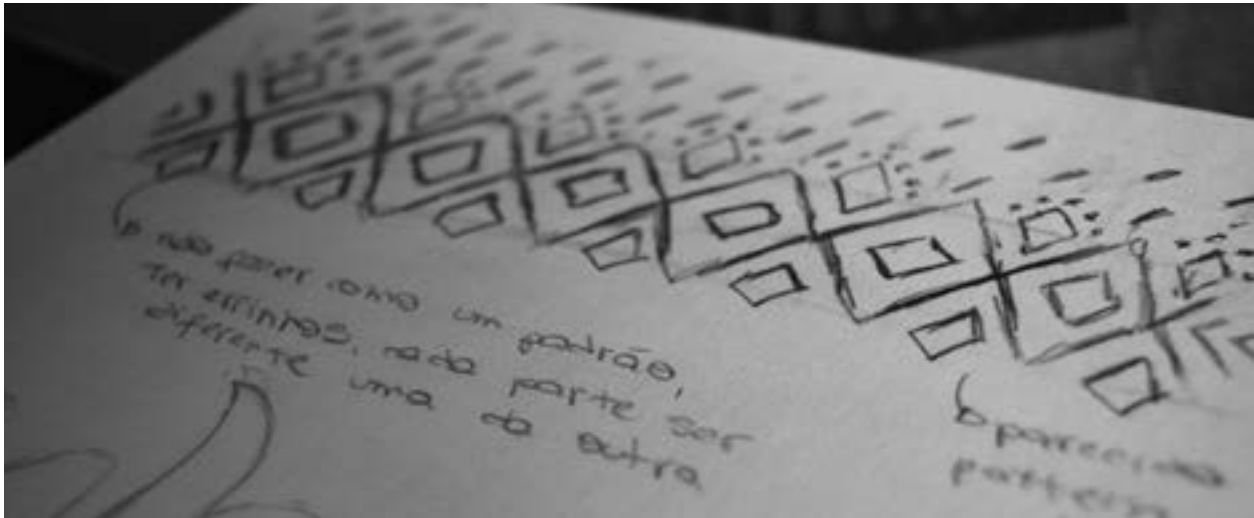 não fazer como um padrão,
ter errinhos, cada parte ser
diferente uma da outra
parecido
pattern